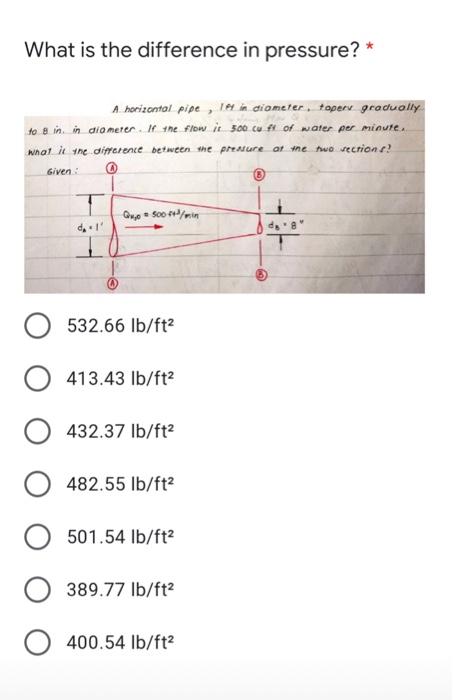 What is the difference in pressure? *
A horizontal pipe, 1ft in diameter, tapers gradually
to 8 in. in diameter. If the flow is 500 cu ft of water per minute,
what is the difference between the pressure at the two sections?
Given:
A
B
QH₂O = 500 ft³/min
dA = 1'
dB = 8"
A
B
532.66 lb/ft²
413.43 lb/ft²
432.37 lb/ft²
482.55 lb/ft²
501.54 lb/ft²
389.77 lb/ft²
400.54 lb/ft²